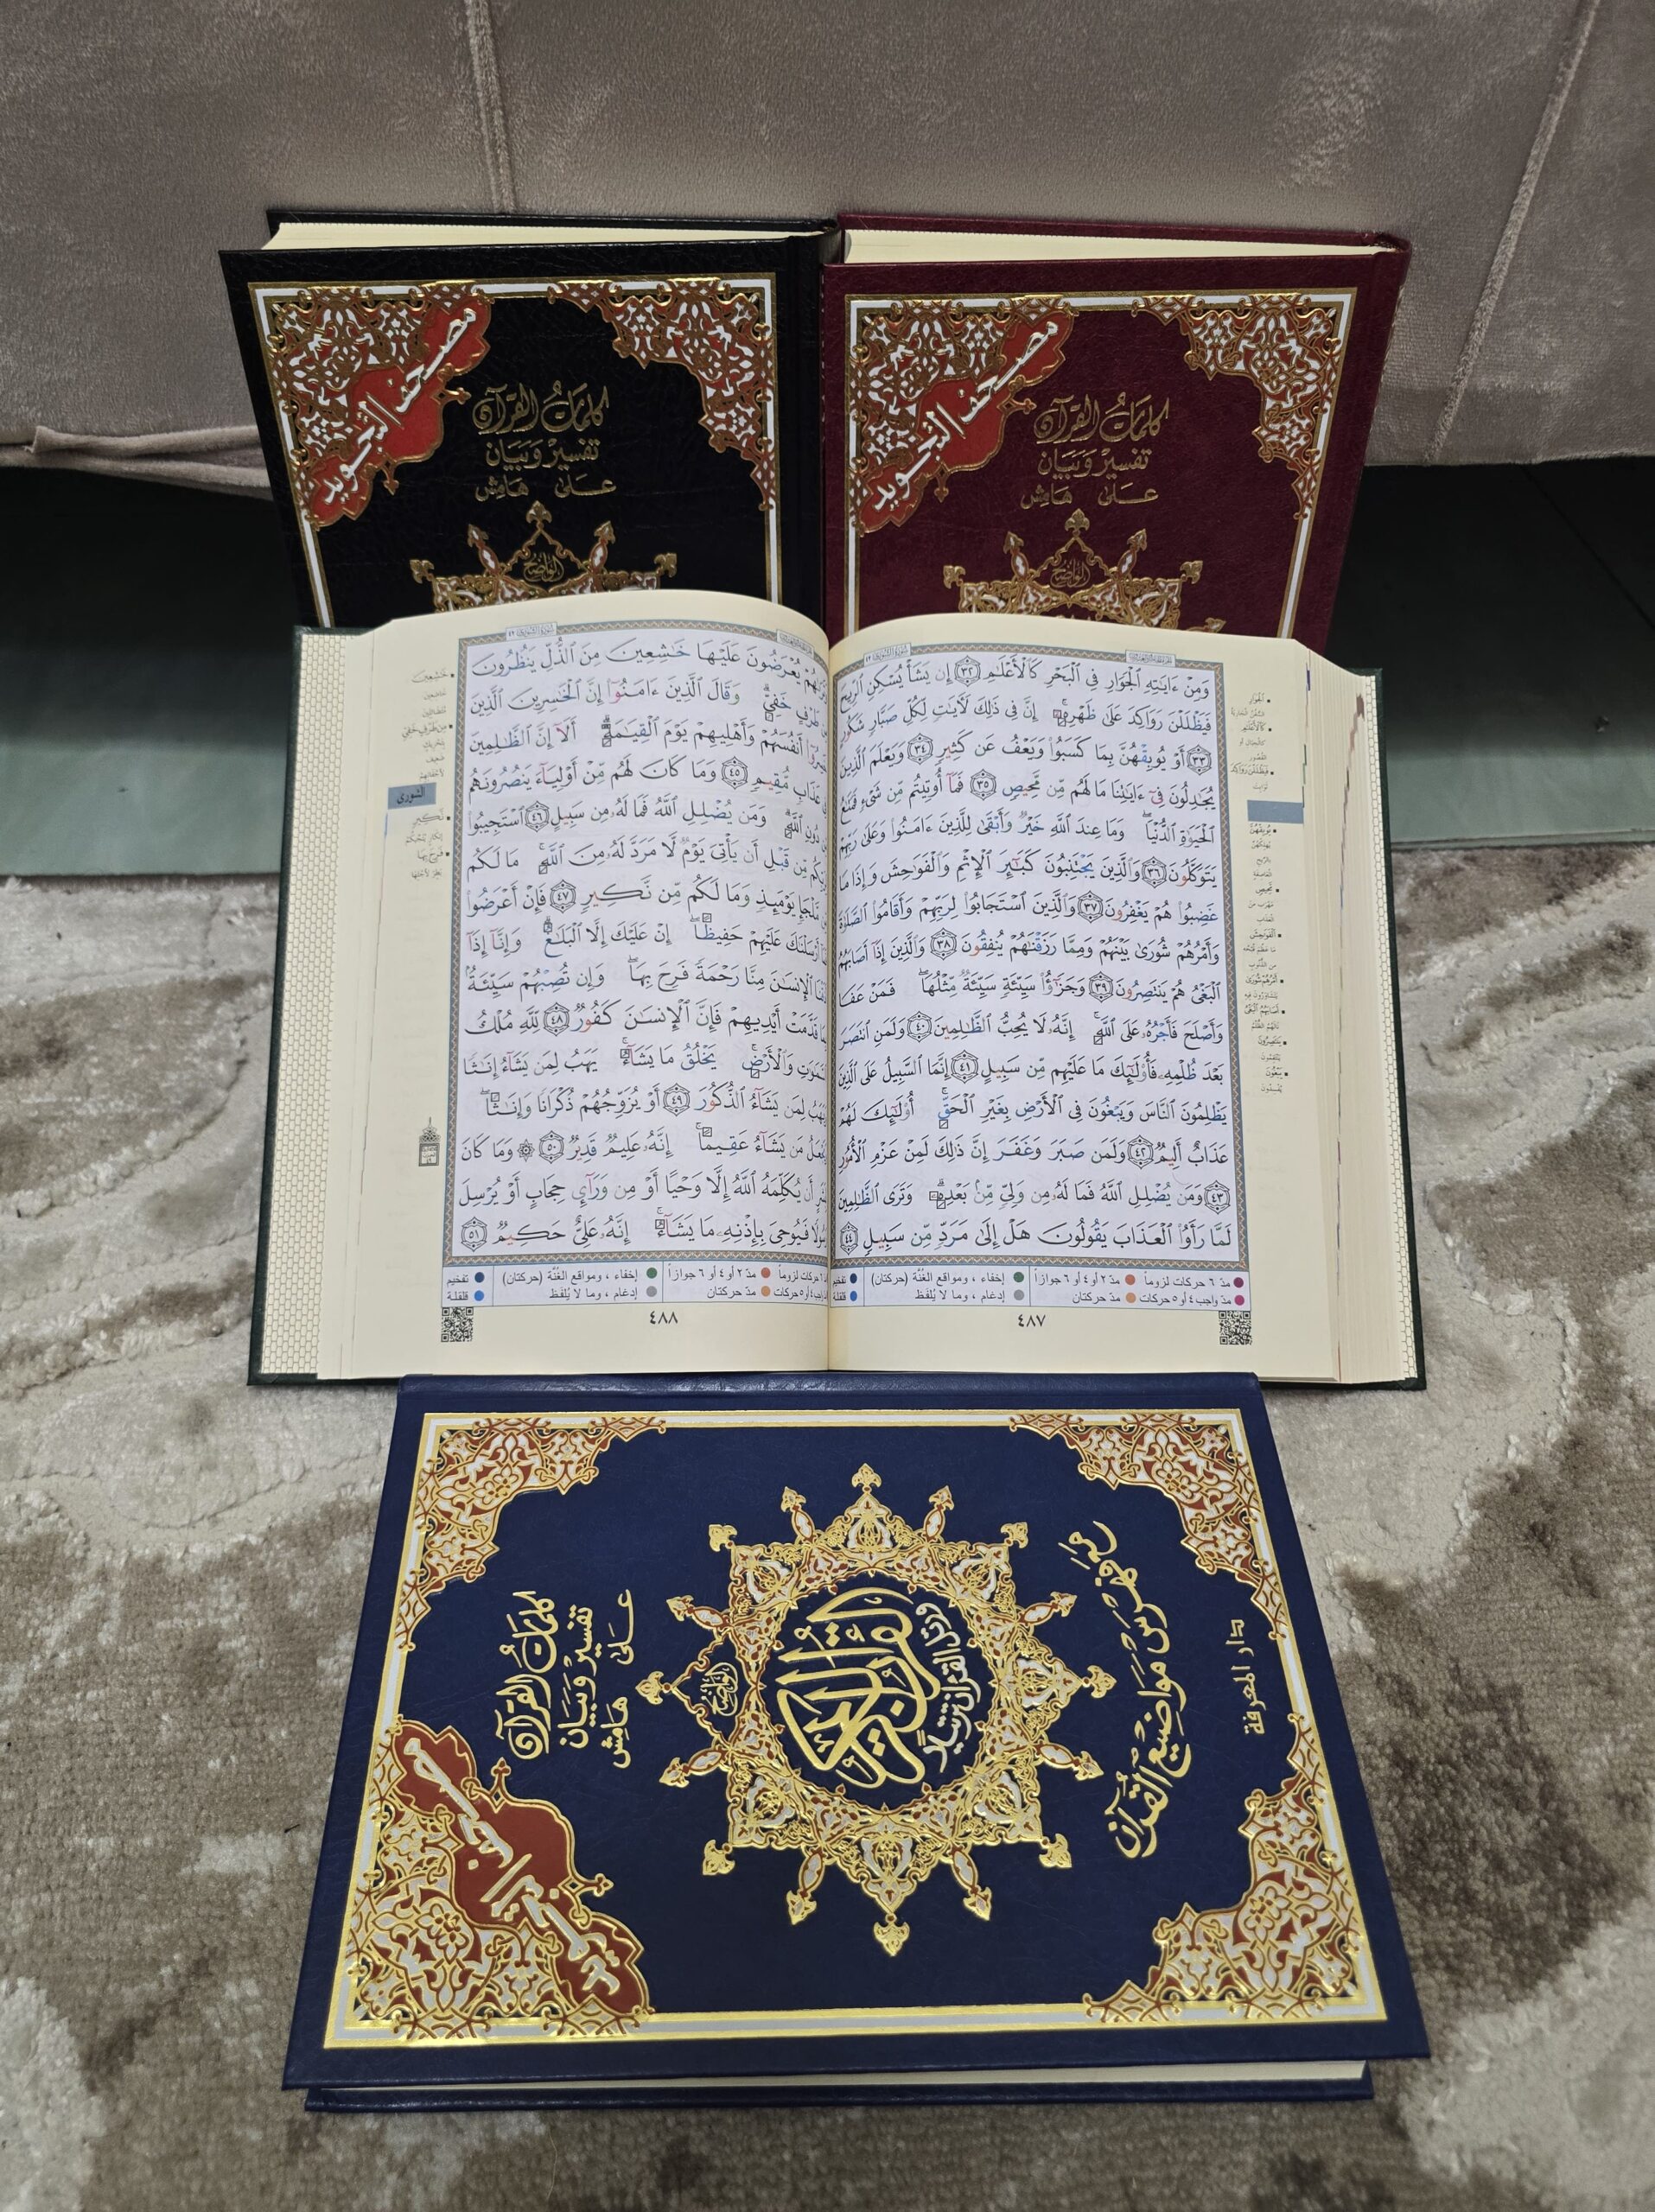 مصحف التجويد
كلمات القرآن
تفسير وبيان
على هامش
الواضح
مصحف التجويد
كلمات القرآن
تفسير وبيان
على هامش
الواضح
سورة الشورى ٤٢
وَمِنْ ءَايَٰتِهِ ٱلْجَوَارِ فِي ٱلْبَحْرِ كَٱلْأَعْلَٰمِ ٣٢ إِن يَشَأْ يُسْكِنِ ٱلرِّيحَ
فَيَظْلَلْنَ رَوَاكِدَ عَلَىٰ ظَهْرِهِۦٓ إِنَّ فِي ذَٰلِكَ لَأٓيَٰتٍ لِّكُلِّ صَبَّارٍ شَكُورٍ
٣٣ أَوْ يُوبِقْهُنَّ بِمَا كَسَبُوا۟ وَيَعْفُ عَن كَثِيرٍ ٣٤ وَيَعْلَمَ ٱلَّذِينَ
يُجَٰدِلُونَ فِيٓ ءَايَٰتِنَا مَا لَهُم مِّن مَّحِيصٍ ٣٥ فَمَآ أُوتِيتُم مِّن شَىْءٍ فَمَتَٰعُ
ٱلْحَيَوٰةِ ٱلدُّنْيَا وَمَا عِندَ ٱللَّهِ خَيْرٌ وَأَبْقَىٰ لِلَّذِينَ ءَامَنُوا۟ وَعَلَىٰ رَبِّهِمْ
يَتَوَكَّلُونَ ٣٦ وَٱلَّذِينَ يَجْتَنِبُونَ كَبَٰٓئِرَ ٱلْإِثْمِ وَٱلْفَوَٰحِشَ وَإِذَا مَا
غَضِبُوا۟ هُمْ يَغْفِرُونَ ٣٧ وَٱلَّذِينَ ٱسْتَجَابُوا۟ لِرَبِّهِمْ وَأَقَامُوا۟ ٱلصَّلَوٰةَ
وَأَمْرُهُمْ شُورَىٰ بَيْنَهُمْ وَمِمَّا رَزَقْنَٰهُمْ يُنفِقُونَ ٣٨ وَٱلَّذِينَ إِذَآ أَصَابَهُمُ
ٱلْبَغْىُ هُمْ يَنتَصِرُونَ ٣٩ وَجَزَٰٓؤُا۟ سَيِّئَةٍ سَيِّئَةٌ مِّثْلُهَا فَمَنْ عَفَا
وَأَصْلَحَ فَأَجْرُهُۥ عَلَى ٱللَّهِ إِنَّهُۥ لَا يُحِبُّ ٱلظَّٰلِمِينَ ٤٠ وَلَمَنِ ٱنتَصَرَ
بَعْدَ ظُلْمِهِۦ فَأُو۟لَٰٓئِكَ مَا عَلَيْهِم مِّن سَبِيلٍ ٤١ إِنَّمَا ٱلسَّبِيلُ عَلَى ٱلَّذِينَ
يَظْلِمُونَ ٱلنَّاسَ وَيَبْغُونَ فِي ٱلْأَرْضِ بِغَيْرِ ٱلْحَقِّ أُو۟لَٰٓئِكَ لَهُمْ
عَذَابٌ أَلِيمٌ ٤٢ وَلَمَن صَبَرَ وَغَفَرَ إِنَّ ذَٰلِكَ لَمِنْ عَزْمِ ٱلْأُمُورِ
٤٣ وَمَن يُضْلِلِ ٱللَّهُ فَمَا لَهُۥ مِن وَلِيٍّ مِّنۢ بَعْدِهِۦ وَتَرَى ٱلظَّٰلِمِينَ
لَمَّا رَأَوُا۟ ٱلْعَذَابَ يَقُولُونَ هَلْ إِلَىٰ مَرَدٍّ مِّن سَبِيلٍ ٤٤
مدّ ٦ حركات لزوماً مدّ ٢ أو ٤ أو ٦ جوازاً إخفاء ، ومواقع الغُنَّة (حركتان) تفخيم
مدّ واجب ٤ أو ٥ حركات مدّ حركتان إدغام ، وما لا يُلفَظ قلقلة
٤٨٧
سورة الشورى ٤٢
يُعْرَضُونَ عَلَيْهَا خَٰشِعِينَ مِنَ ٱلذُّلِّ يَنظُرُونَ
طَرْفٍ خَفِيٍّ وَقَالَ ٱلَّذِينَ ءَامَنُوٓا۟ إِنَّ ٱلْخَٰسِرِينَ ٱلَّذِينَ
أَنفُسَهُمْ وَأَهْلِيهِمْ يَوْمَ ٱلْقِيَٰمَةِ أَلَآ إِنَّ ٱلظَّٰلِمِينَ
عَذَابٍ مُّقِيمٍ ٤٥ وَمَا كَانَ لَهُم مِّنْ أَوْلِيَآءَ يَنصُرُونَهُم
دُونِ ٱللَّهِ وَمَن يُضْلِلِ ٱللَّهُ فَمَا لَهُۥ مِن سَبِيلٍ ٤٦ ٱسْتَجِيبُوا۟
مِّن قَبْلِ أَن يَأْتِيَ يَوْمٌ لَّا مَرَدَّ لَهُۥ مِنَ ٱللَّهِ مَا لَكُم
مَّلْجَإٍ يَوْمَئِذٍ وَمَا لَكُم مِّن نَّكِيرٍ ٤٧ فَإِنْ أَعْرَضُوا۟
أَرْسَلْنَٰكَ عَلَيْهِمْ حَفِيظًا إِنْ عَلَيْكَ إِلَّا ٱلْبَلَٰغُ وَإِنَّآ إِذَآ
ٱلْإِنسَٰنَ مِنَّا رَحْمَةً فَرِحَ بِهَا وَإِن تُصِبْهُمْ سَيِّئَةٌۢ
قَدَّمَتْ أَيْدِيهِمْ فَإِنَّ ٱلْإِنسَٰنَ كَفُورٌ ٤٨ لِّلَّهِ مُلْكُ
وَٱلْأَرْضِ يَخْلُقُ مَا يَشَآءُ يَهَبُ لِمَن يَشَآءُ إِنَٰثًا
لِمَن يَشَآءُ ٱلذُّكُورَ ٤٩ أَوْ يُزَوِّجُهُمْ ذُكْرَانًا وَإِنَٰثًا
مَن يَشَآءُ عَقِيمًا إِنَّهُۥ عَلِيمٌ قَدِيرٌ ٥٠ وَمَا كَانَ
أَن يُكَلِّمَهُ ٱللَّهُ إِلَّا وَحْيًا أَوْ مِن وَرَآئِ حِجَابٍ أَوْ يُرْسِلَ
فَيُوحِيَ بِإِذْنِهِۦ مَا يَشَآءُ إِنَّهُۥ عَلِيٌّ حَكِيمٌ ٥١
٦ حركات لزوماً مدّ ٢ أو ٤ أو ٦ جوازاً إخفاء ، ومواقع الغُنَّة (حركتان) تفخيم
٤ أو ٥ حركات مدّ حركتان إدغام ، وما لا يُلفَظ قلقلة
٤٨٨
الشورى
مصحف التجويد
كلمات القرآن
تفسير وبيان
على هامش
الواضح
القرآن الكريم
ورتل القرآن ترتيلا
مع فهرس مواضيع القرآن
دار المعرفة